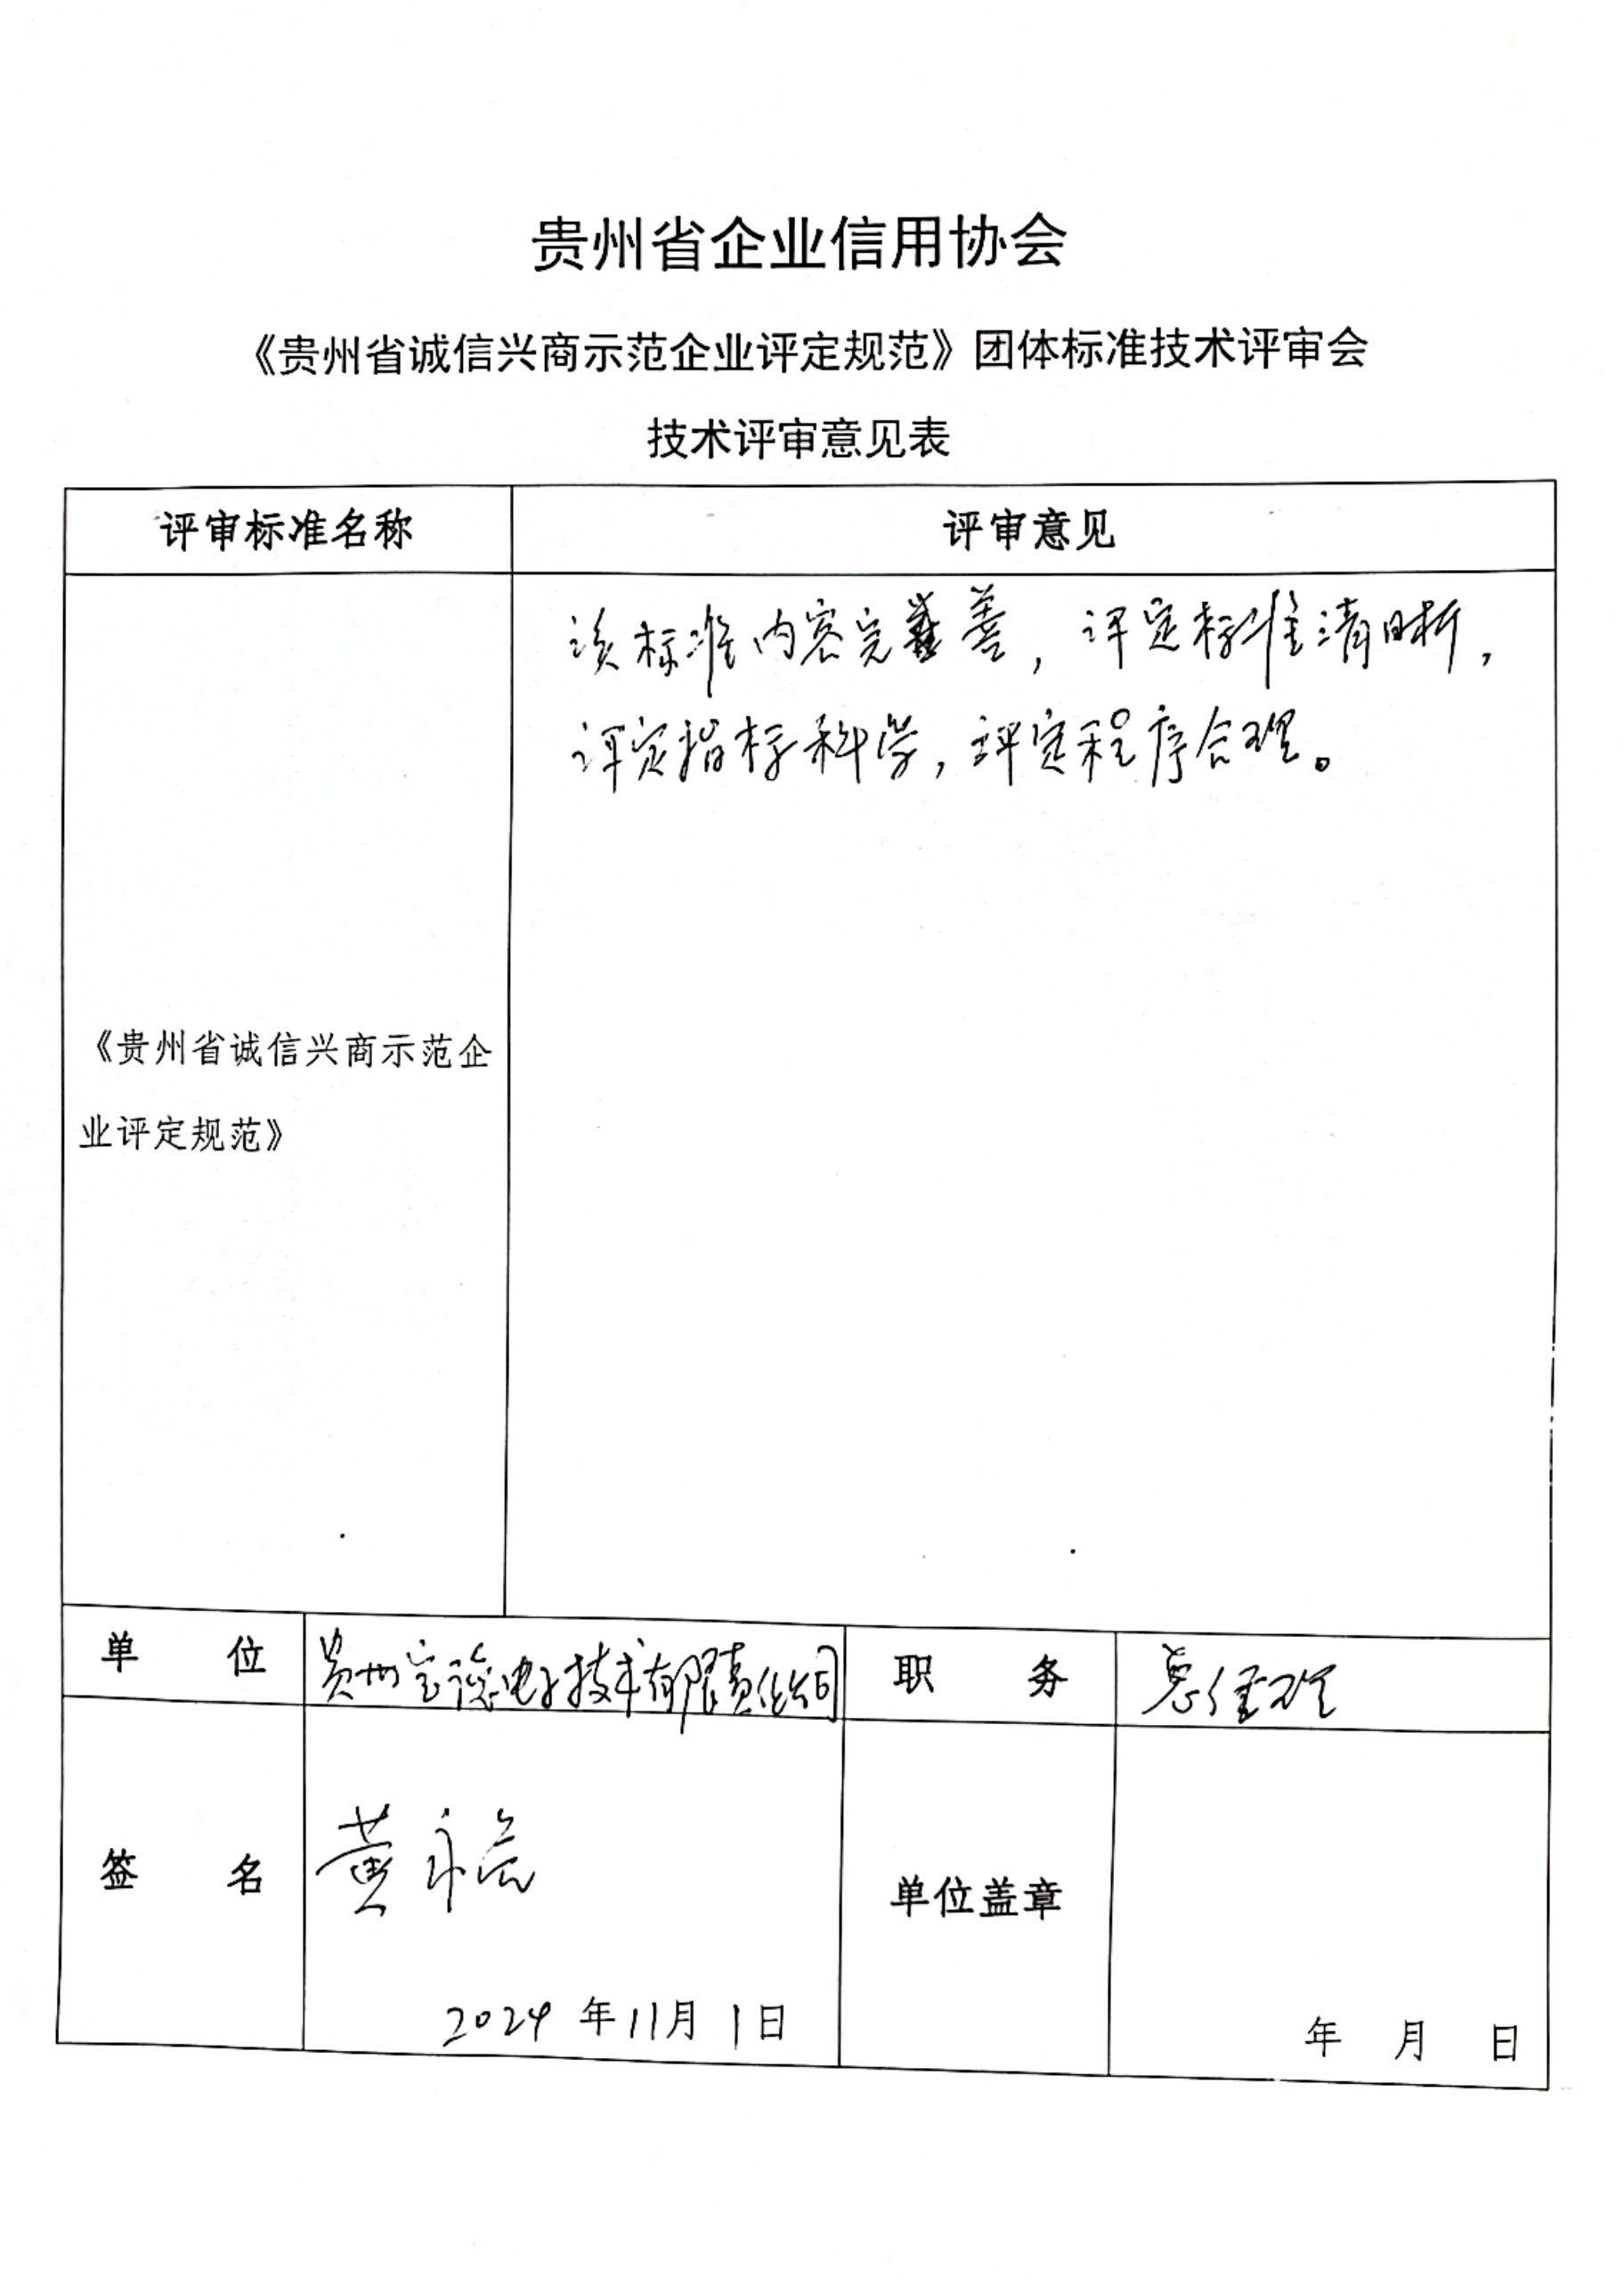 贵州省企业信用协会
《贵州省诚信兴商示范企业评定规范》团体标准技术评审会
技术评审意见表
评审标准名称
评审意见
该标准内容完善，评定标准清晰，
评定指标科学，评定程序合理。
《贵州省诚信兴商示范企
业评定规范》
单 位
贵州宝谊电子技术有限责任公司
职 务
总经理
签 名
黄永亮
2024 年 11 月 1 日
单位盖章
年 月 日